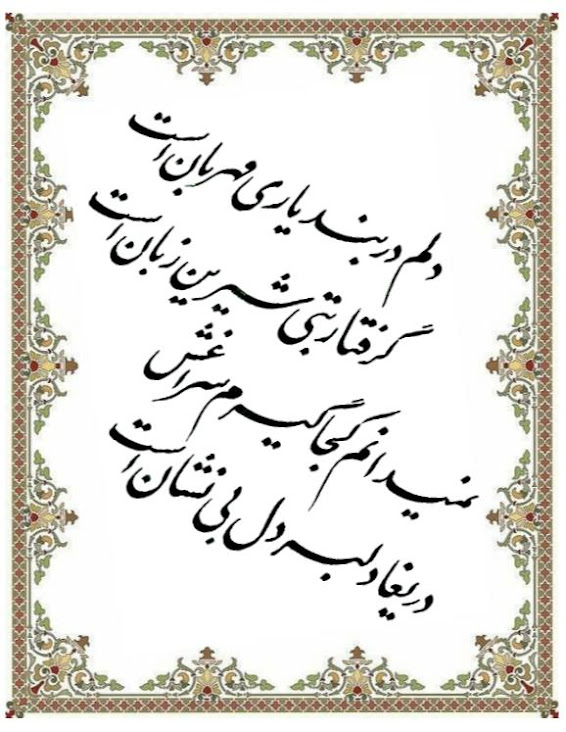 دلم در بند یاری مهربان است
گرفتار بتی شیرین زبان است
نمیدانم کجا گیرم سراغش
دریغا دلبر دل بی نشان است